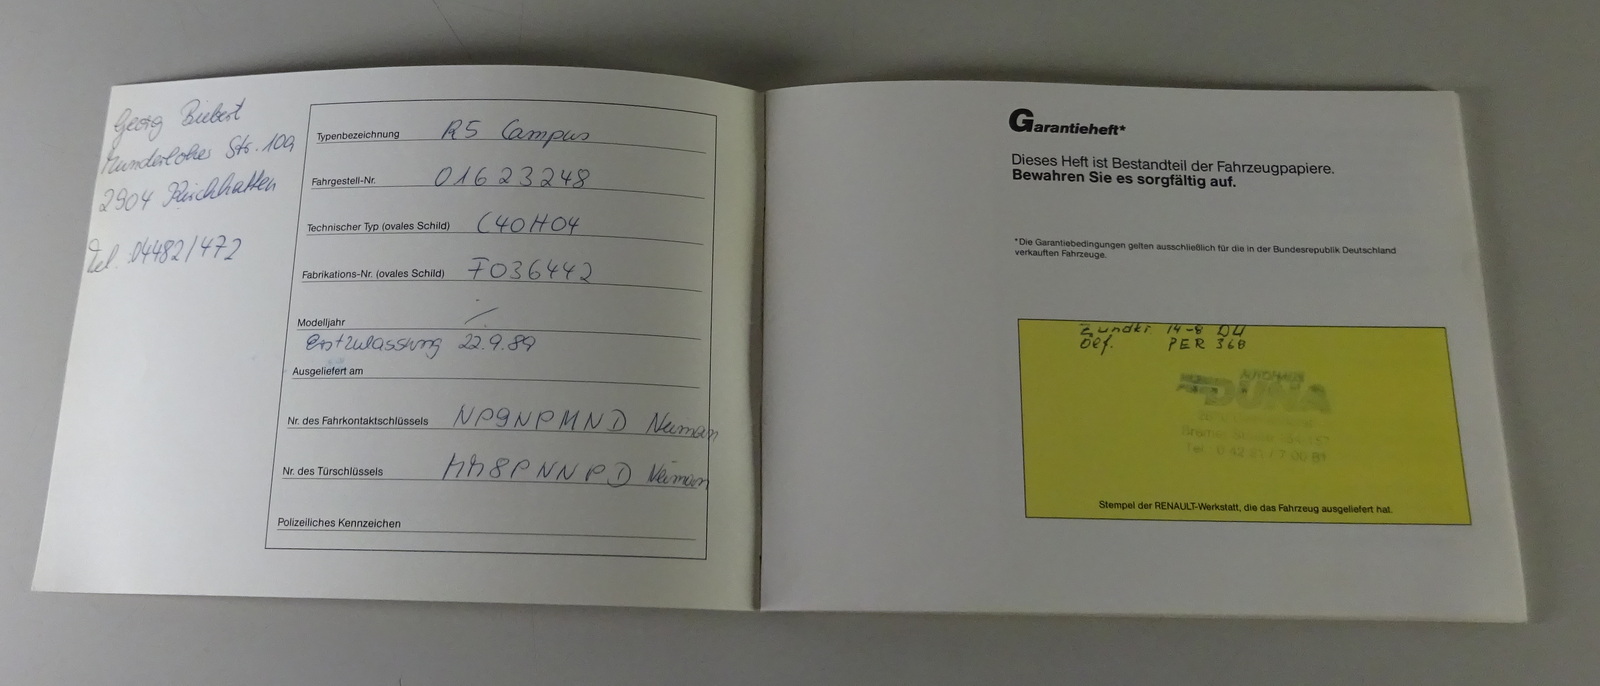 Georg Biebert
Munderloher Str. 10a
2904 Kirchhatten
Tel. 04482/472
Typenbezeichnung R5 Campus
Fahrgestell-Nr. 01623248
Technischer Typ (ovales Schild) C40H04
Fabrikations-Nr. (ovales Schild) F036442
Modelljahr
Erstzulassung 22.9.89
Ausgeliefert am
Nr. des Fahrkontaktschlüssels NP9NPMND Neiman
Nr. des Türschlüssels MM8PNNPD Neiman
Polizeiliches Kennzeichen
Garantieheft*
Dieses Heft ist Bestandteil der Fahrzeugpapiere.
Bewahren Sie es sorgfältig auf.
*Die Garantiebedingungen gelten ausschließlich für die in der Bundesrepublik Deutschland
verkauften Fahrzeuge.
Zündkr 14-8 DU
Oelf. PER 368
AUTOHAUS
DUNA
Tel.
Stempel der RENAULT-Werkstatt, die das Fahrzeug ausgeliefert hat.